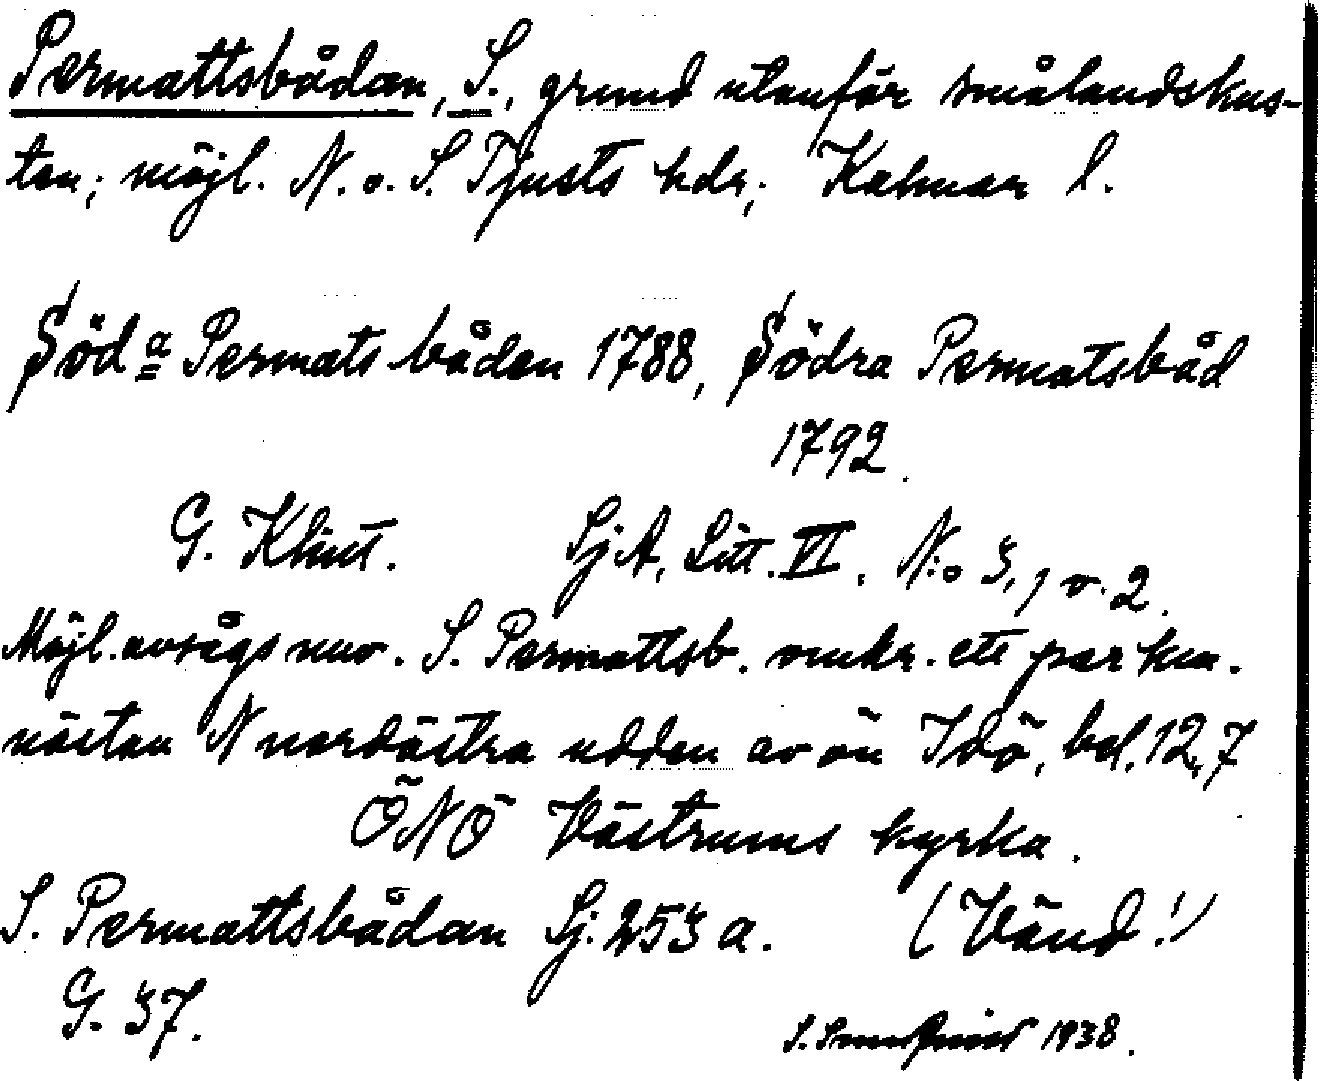 Permattsbådan, S., grund utanför smålandskus-
ten; möjl. N. o. S. Tjusts hdr; Kalmar l.
Söd<sup>a</sup> Permats båden 1788, Södra Permatsbåd
1792.
G. Klint. SjA, Litt. VI. N:o 3, 1 o. 2.
Möjl. avsågs nuv. S. Permattsb. omkr. ett par km.
nästan N nordöstra udden av ön Idö, bel. 12,7
ÖNÖ Västrums kyrka.
S. Permattsbådan Sj. 253 a. (Vänd!)
G. 37.
S. 1938.